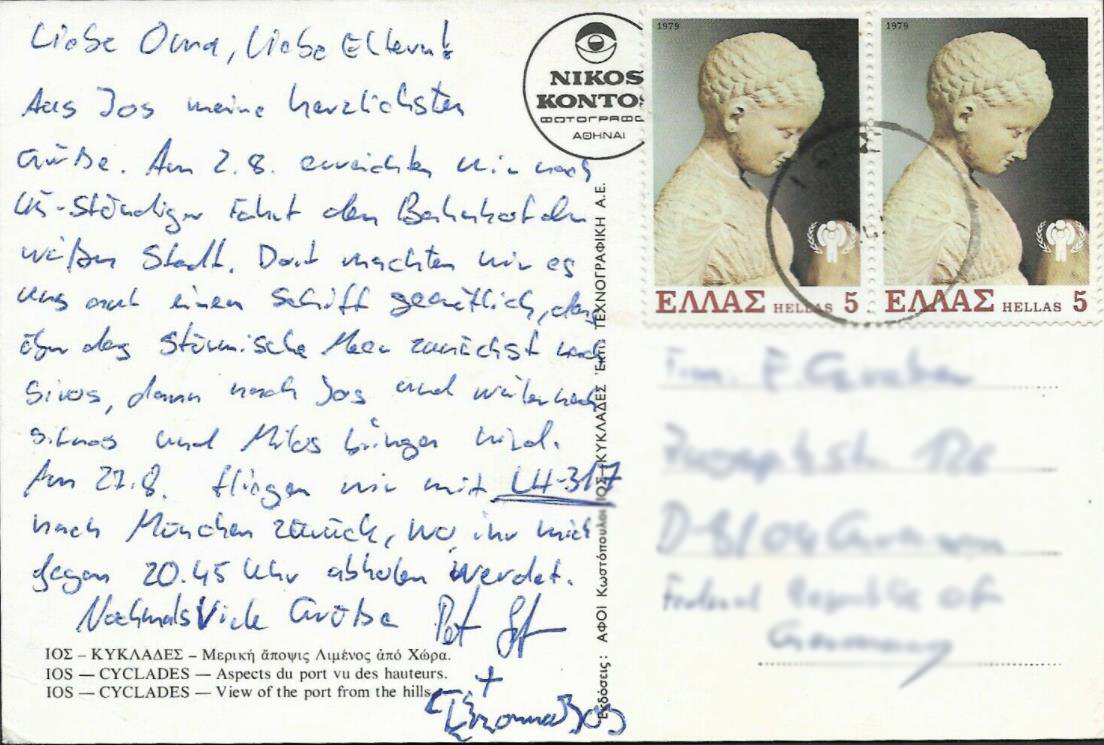 Liebe Oma, liebe Eltern!
Aus Jos meine herzlichsten
Grüße. Am 2.8. erreichten wir nach
-stündiger Fahrt den Bahnhof der
weißen Stadt. Dort machten wir es
uns auf einem Schiff gemütlich, das
über das stürmische Meer zunächst nach
dann nach Jos und weiter nach
und Milos bringen wird.
Am 27.8. fliegen wir mit LH-317
nach München zurück, wo ihr mich
gegen 20.45 Uhr abholen werdet.
Nochmals Viele Grüße
+
ΙΟΣ – ΚΥΚΛΑΔΕΣ – Μερική ἄποψις Λιμένος ἀπό Χώρα.
IOS — CYCLADES — Aspects du port vu des hauteurs.
IOS — CYCLADES — View of the port from the hills.
NIKOS
KONTOS
ΦΩΤΟΓΡΑΦΟ
ΑΘΗΝΑΙ
Ἐκδόσεις: ΑΦΟΙ Κωστόπουλοι ΙΟΣ - ΚΥΚΛΑΔΕΣ ΤΕΧΝΟΓΡΑΦΙΚΗ Α.Ε.
1979
ΕΛΛΑΣ HELLAS 5
1979
ΕΛΛΑΣ HELLAS 5